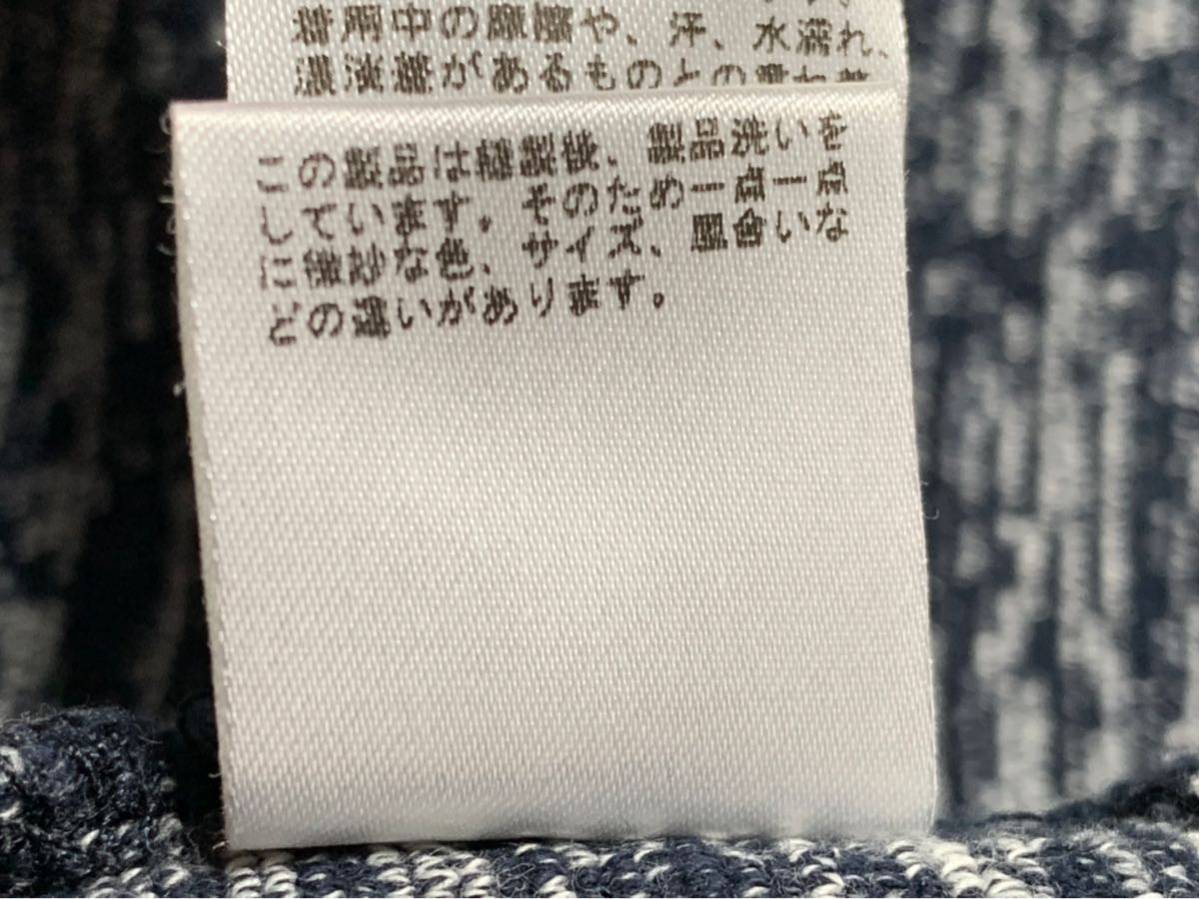 着用中の摩擦や、汗、水濡れ、
濃淡差があるものとの重ね着
この製品は縫製後、製品洗いを
しています。そのため一点一点
に微妙な色、サイズ、風合いな
どの違いがあります。